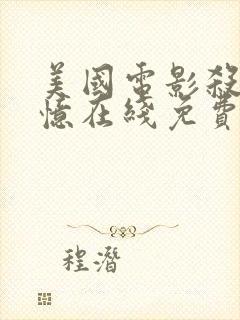 美國電影殺
憶在綫免費
程潛